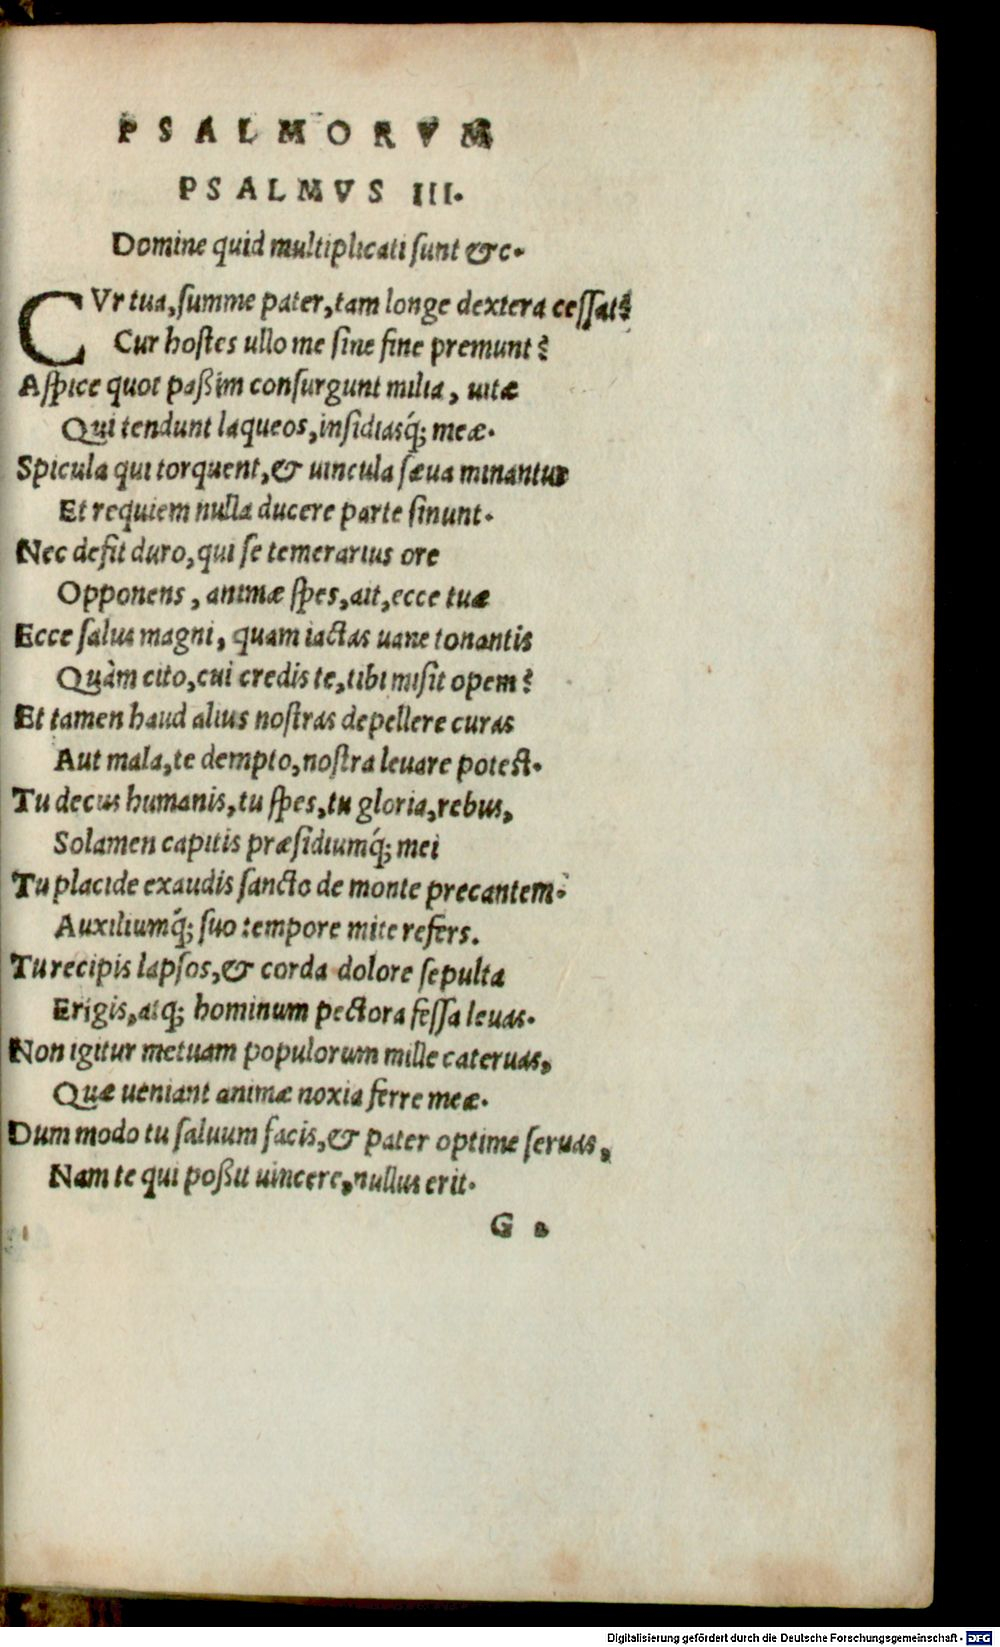 PSALMORVM
PSALMVS III.
Domine quid multiplicati sunt &c.
CVr tua, summe pater, tam longe dextera cessat?
Cur hostes ullo me sine fine premunt?
Aspice quot paßim consurgunt milia, uitæ
Qui tendunt laqueos, insidiasq́; meæ.
Spicula qui torquent, & uincula sæua minantur
Et requiem nulla ducere parte sinunt.
Nec desit duro, qui se temerarius ore
Opponens, animæ spes, ait, ecce tuæ
Ecce salus magni, quam iactas uane tonantis
Quàm cito, cui credis te, tibi misit opem?
Et tamen haud alius nostras depellere curas
Aut mala, te dempto, nostra leuare potest.
Tu decus humanis, tu spes, tu gloria, rebus,
Solamen capitis præsidiumq́; mei
Tu placide exaudis sancto de monte precantem.
Auxiliumq́; suo tempore mite refers.
Tu recipis lapsos, & corda dolore sepulta
Erigis, atq; hominum pectora fessa leuas.
Non igitur metuam populorum mille cateruas,
Quæ ueniant animæ noxia ferre meæ.
Dum modo tu saluum facis, & pater optime seruas,
Nam te qui poßit uincere, nullus erit.
G 2
Digitalisierung gefördert durch die Deutsche Forschungsgemeinschaft - DFG